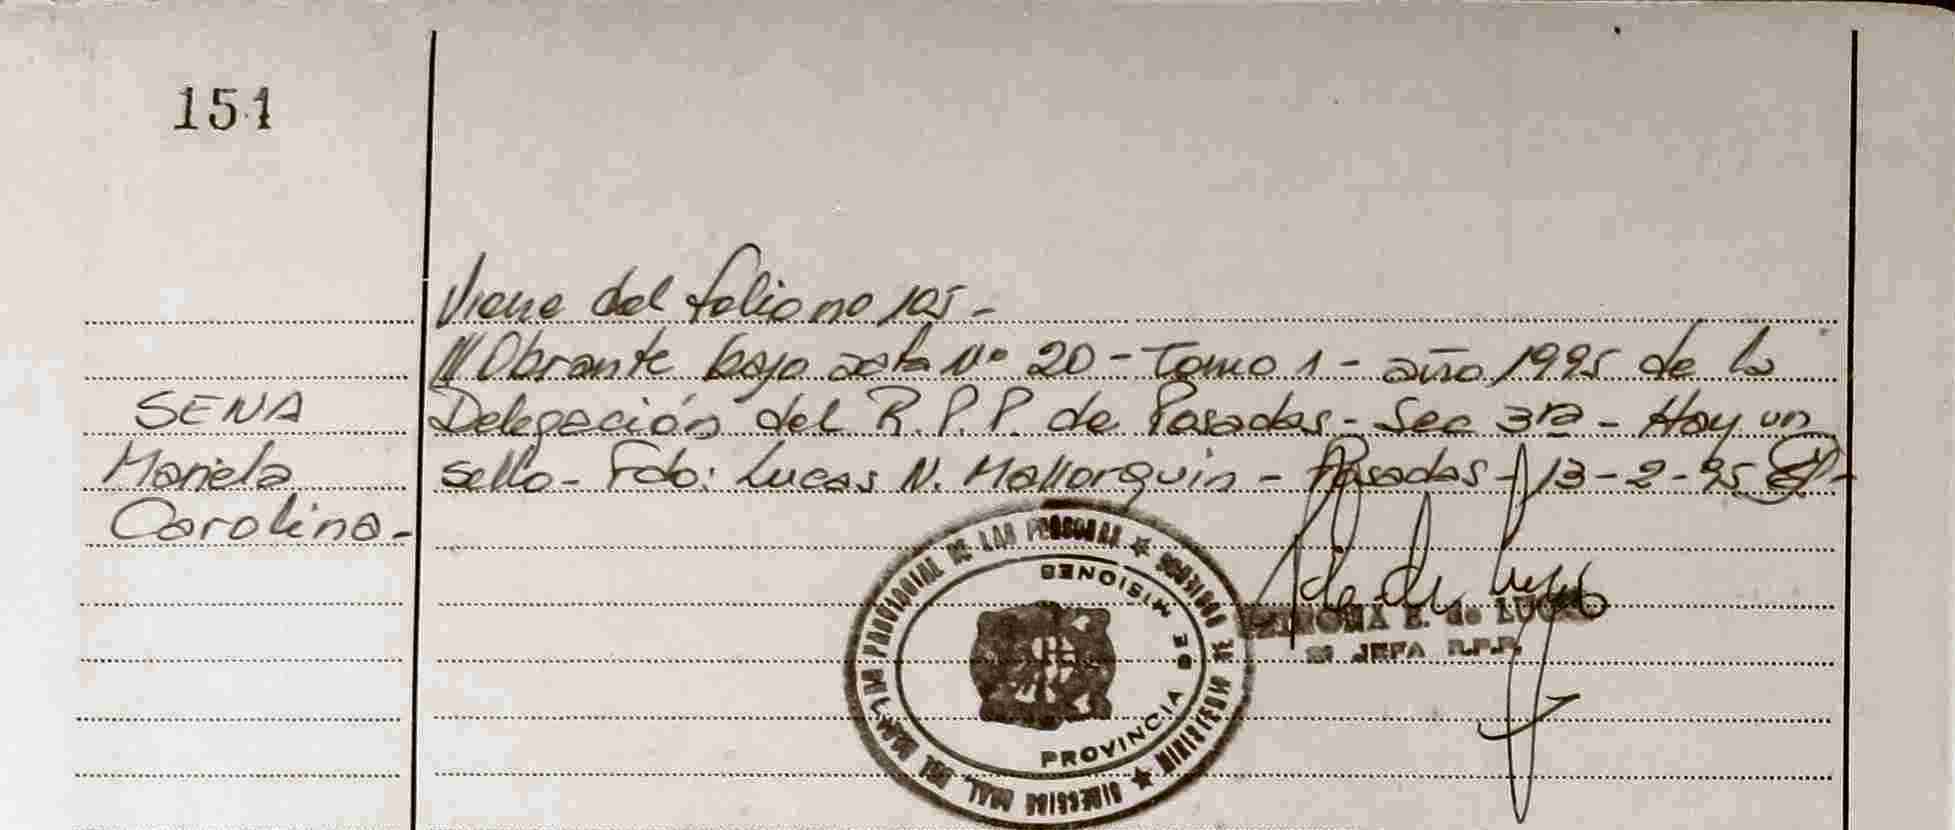 151
Viene del folio no 105-
/// Obrante bajo acta Nº 20 - Tomo 1 - año 1995 de la
SENA
Delegación del R.P.P. de Posadas - Sec 3ra - Hay un
Mariela
sello - Fdo: Lucas N. Mallorquin - Posadas - 13-2-95
Carolina-
PROVINCIAL DE LAS PERSONAS
PROVINCIA DE MISIONES
E. de LUQUE
JEFA R.P.P.